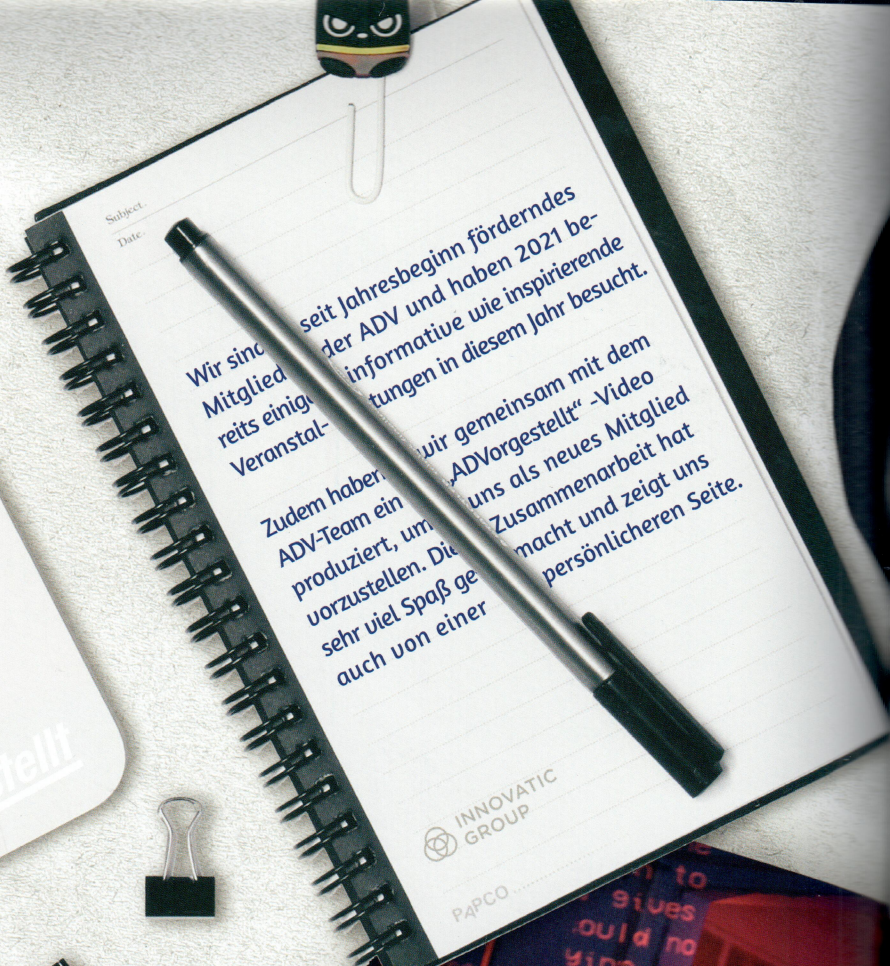 Subject.
Date.
Wir sind seit Jahresbeginn förderndes
Mitglied der ADV und haben 2021 be-
reits einige informative wie inspirierende
Veranstal- tungen in diesem Jahr besucht.
Zudem haben wir gemeinsam mit dem
ADV-Team ein „ADVorgestellt“ -Video
produziert, um uns als neues Mitglied
vorzustellen. Die Zusammenarbeit hat
sehr viel Spaß ge macht und zeigt uns
auch von einer persönlicheren Seite.
tellt
INNOVATIC
GROUP
PAPCO
to
gives
ould no